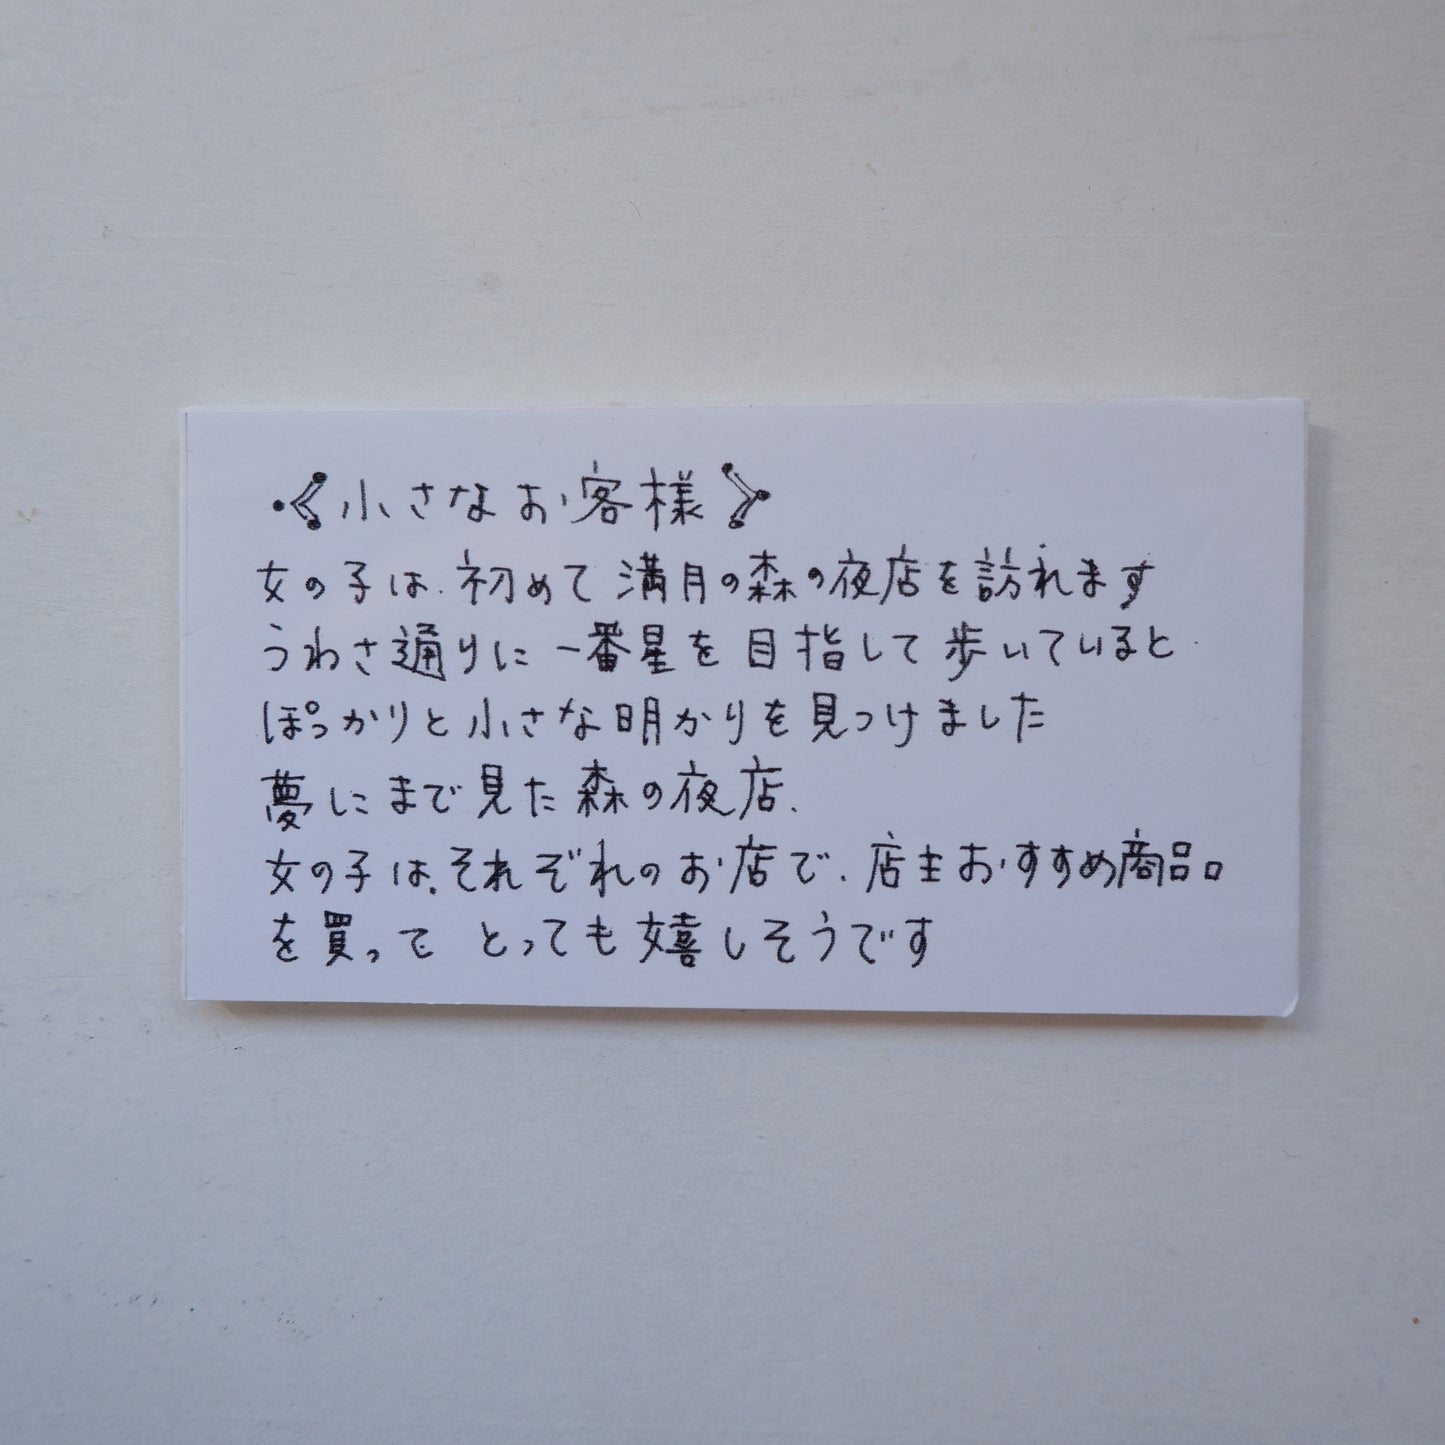 《小さなお客様》
女の子は、初めて満月の森の夜店を訪れます
うわさ通りに一番星を目指して歩いていると
ぽっかりと小さな明かりを見つけました
夢にまで見た森の夜店、
女の子は、それぞれのお店で、店主おすすめ商品
を買って とっても嬉しそうです